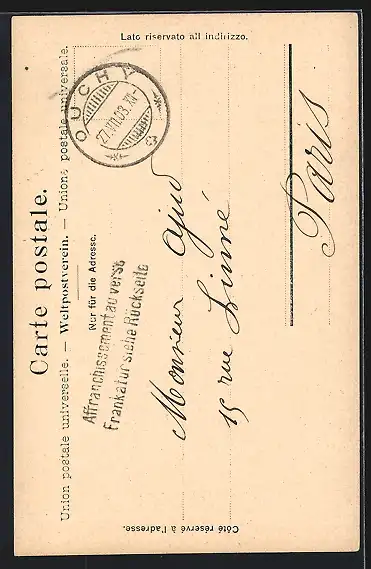 Carte postale.
Union postale universelle. — Weltpostverein. — Unione postale universale.
Nur für die Adresse.
Lato riservato all indirizzo.
Côté réservé à l'adresse.
OUCHY
27.VII.03.XII-
Affranchissement au verso
Frankatur siehe Rückseite
Monsieur Ajud
15 rue Linné
Paris